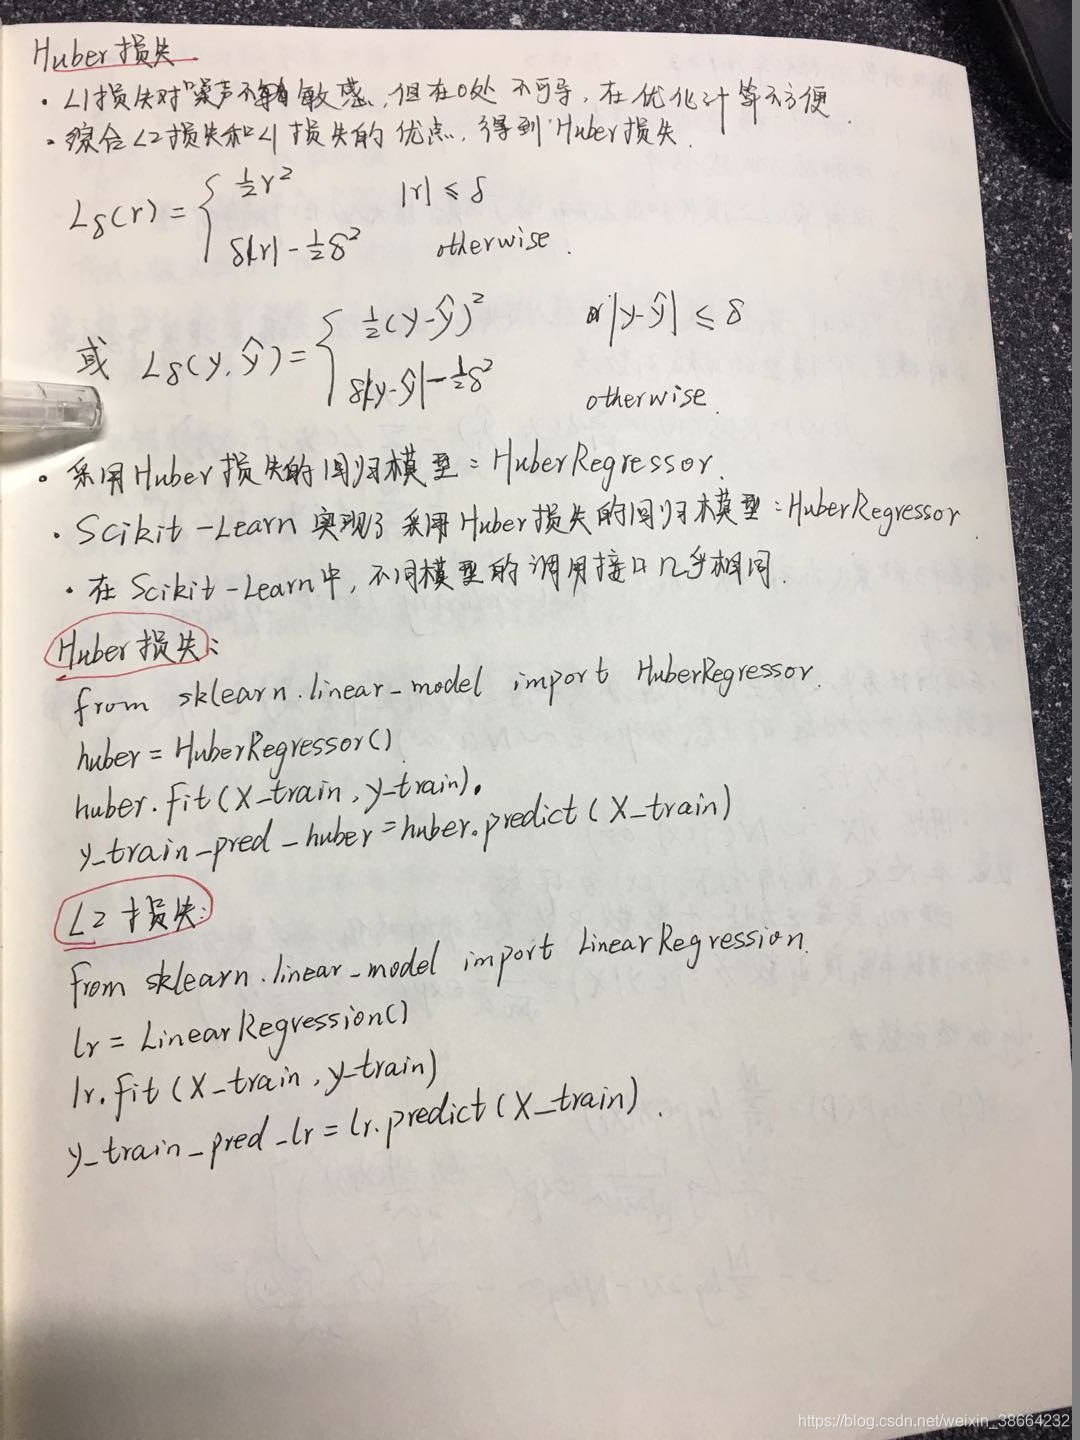 Huber损失
· L1损失对噪声不敏感,但在0处不可导,在优化计算不方便.
· 综合L2损失和L1损失的优点,得到Huber损失.
Lδ(r) = { ½r² |r| ≤ δ
δ|r| - ½δ² otherwise.
或 Lδ(y, ŷ) = { ½(y-ŷ)² |y-ŷ| ≤ δ
δ|y-ŷ| - ½δ² otherwise.
· 采用Huber损失的回归模型:HuberRegressor.
· Scikit-Learn实现了采用Huber损失的回归模型:HuberRegressor
· 在Scikit-Learn中,不同模型的调用接口几乎相同.
Huber损失:
from sklearn.linear_model import HuberRegressor.
huber = HuberRegressor()
huber.fit(X_train, y_train).
y_train_pred_huber = huber.predict(X_train)
L2损失:
from sklearn.linear_model import LinearRegression.
lr = LinearRegression()
lr.fit(X_train, y_train)
y_train_pred_lr = lr.predict(X_train).
https://blog.csdn.net/weixin_38664232